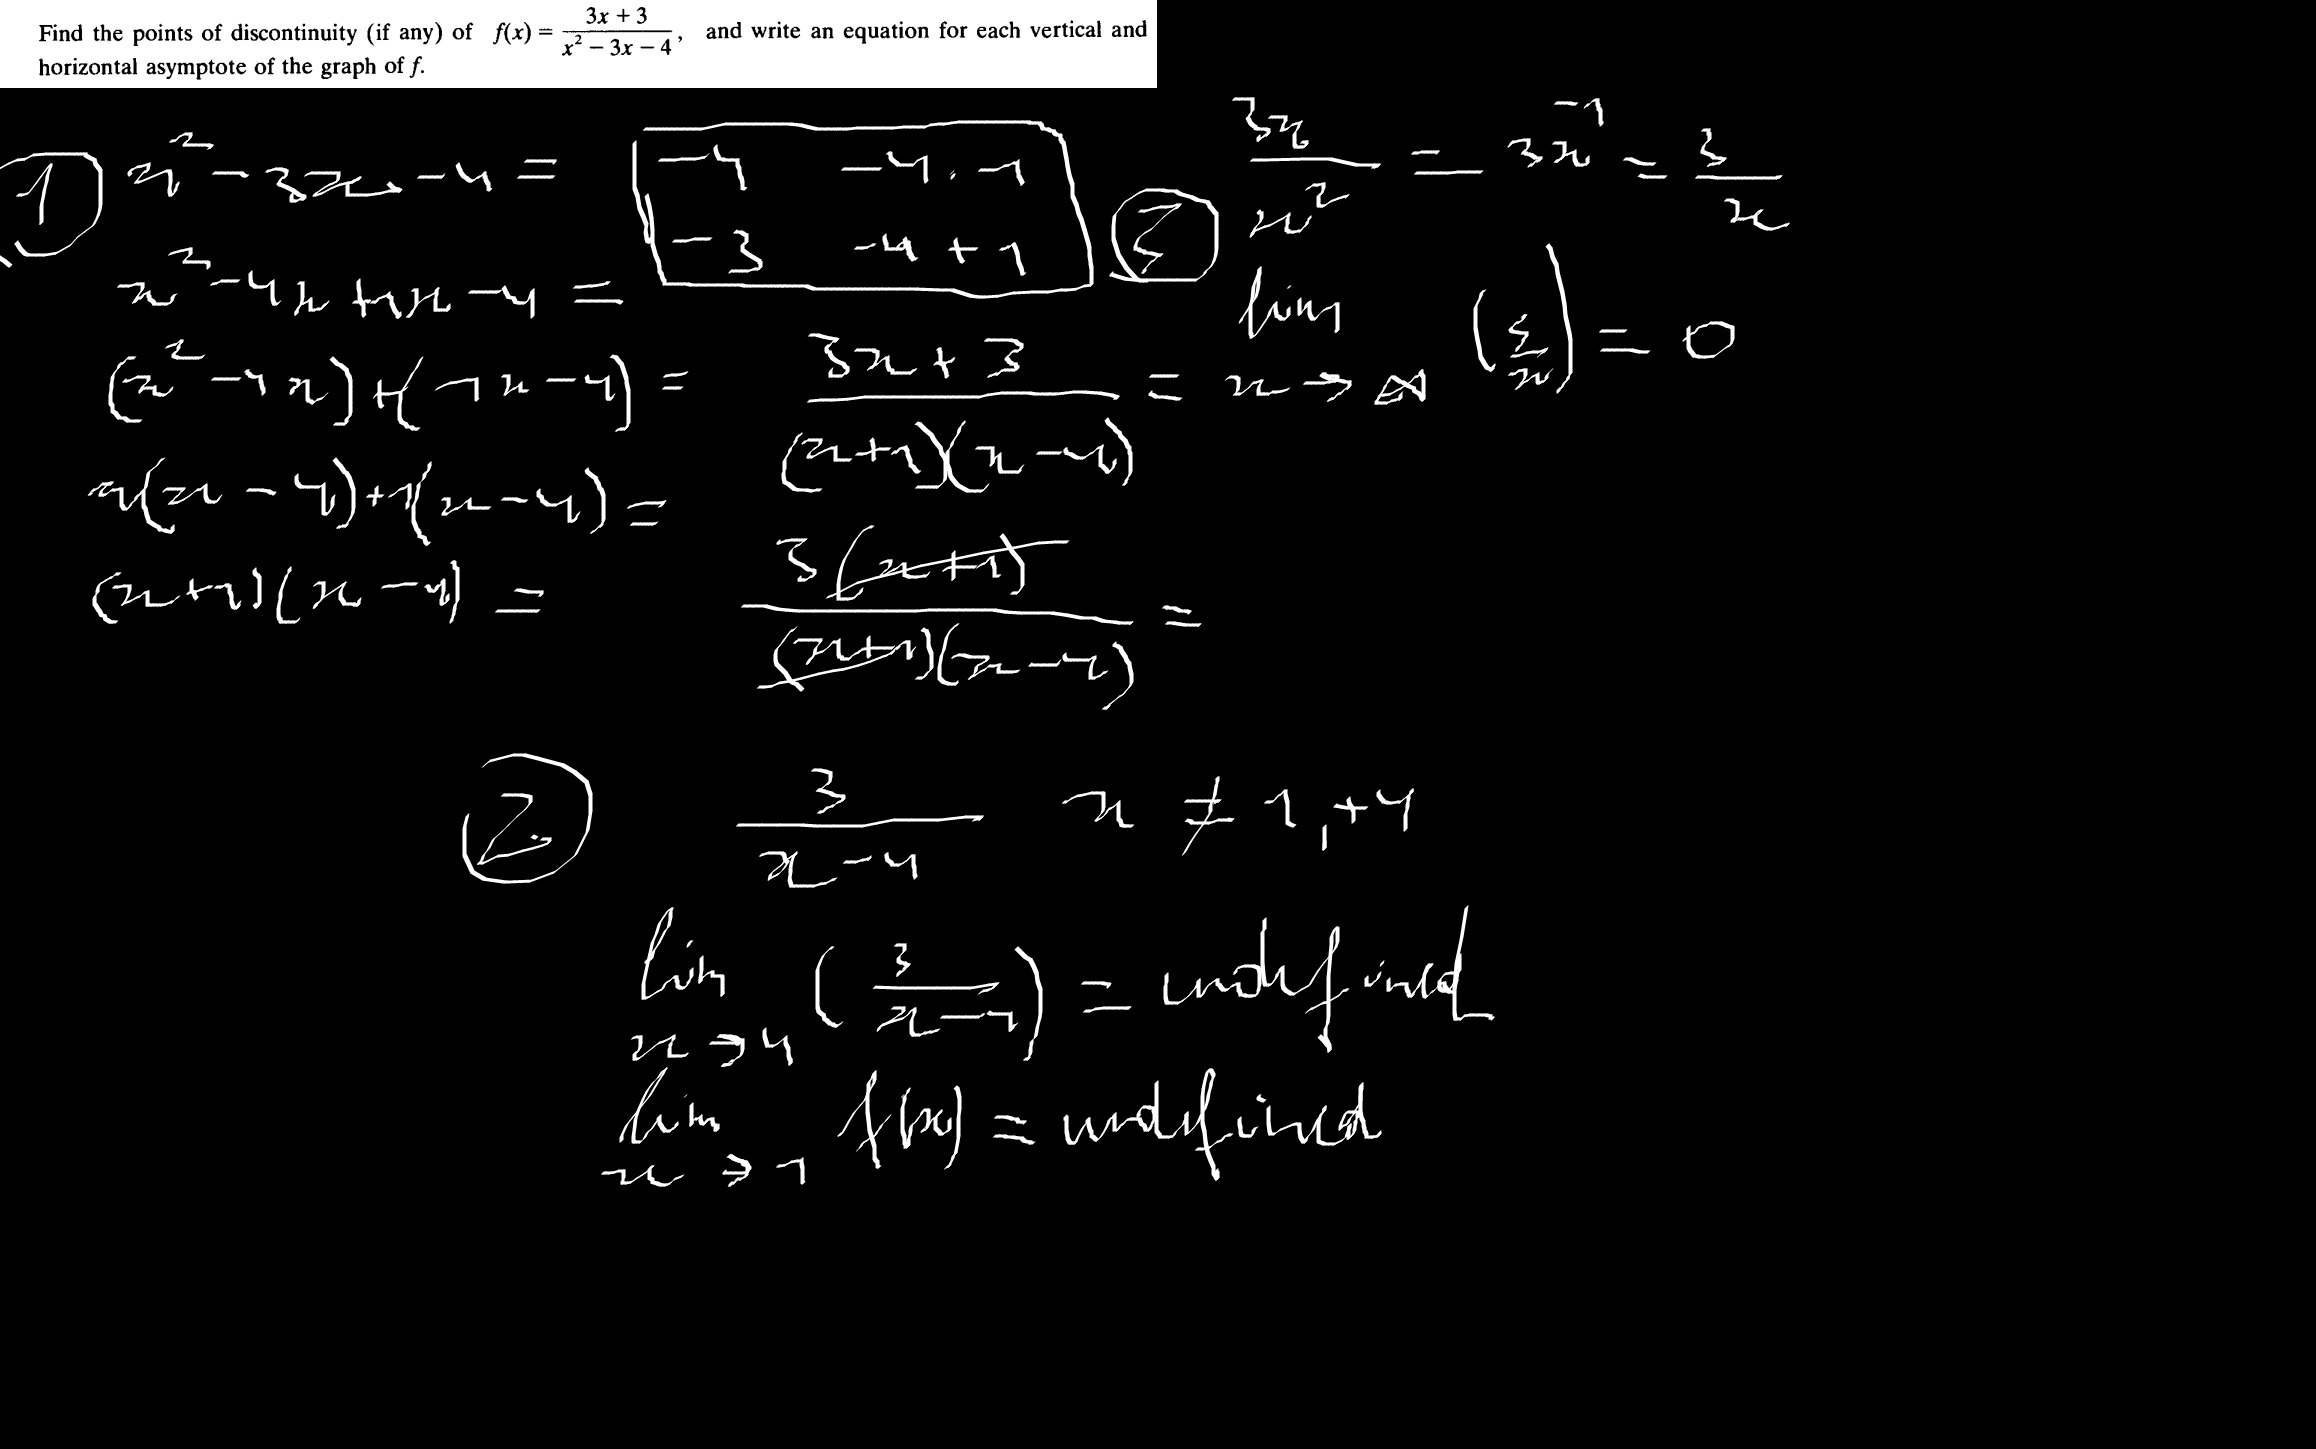 Find the points of discontinuity (if any) of f(x) = (3x + 3)/(x² − 3x − 4), and write an equation for each vertical and
horizontal asymptote of the graph of f.
① x² − 3x − 4 =
x² − 4x + 1x − 4 =
(x² − 4x) + (1x − 4) =
x(x − 4) + 1(x − 4) =
(x + 1)(x − 4) =
−4 −4 · 1
−3 −4 + 1
(3x + 3)/((x + 1)(x − 4)) =
3(x + 1)/((x + 1)(x − 4)) =
② 3/(x − 4) x ≠ 1, +4
lim x → 4 (3/(x − 4)) = undefined
lim x → 1 f(x) = undefined
③ 3x/x² = 3x⁻¹ = 3/x
lim x → ∞ (3/x) = 0